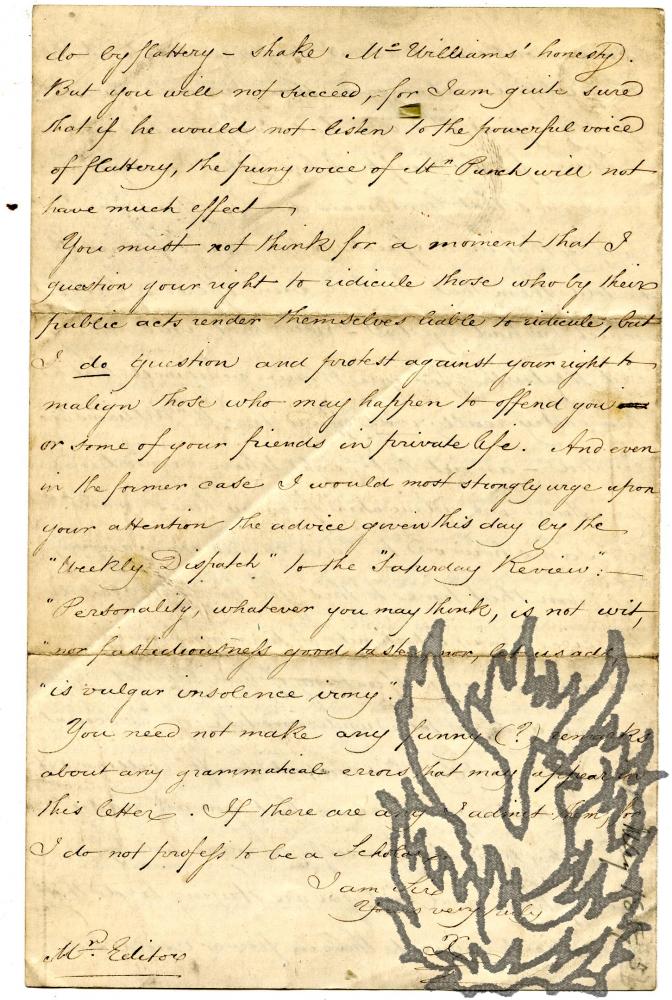 do by flattery – shake Mr Williams' honesty.
But you will not succeed, for I am quite sure
that if he would not listen to the powerful voice
of flattery, the puny voice of Mr Punch will not
have much effect
You must not think for a moment that I
question your right to ridicule those who by their
public acts render themselves liable to ridicule, but
I do question and protest against your right to
malign those who may happen to offend you
or some of your friends in private life. And even
in the former case I would most strongly urge upon
your attention the advice given this day by the
"Weekly Dispatch" to the "Saturday Review":—
"Personality, whatever you may think, is not wit,
"nor fastidiousness good taste, nor, let us add,
"is vulgar insolence irony".
You need not make any funny (?) remarks
about any grammatical errors that may appear in
this letter. If there are any I admit them, for
I do not profess to be a Scholar.
I am Sir
Yours very truly
Mr. Editor
May